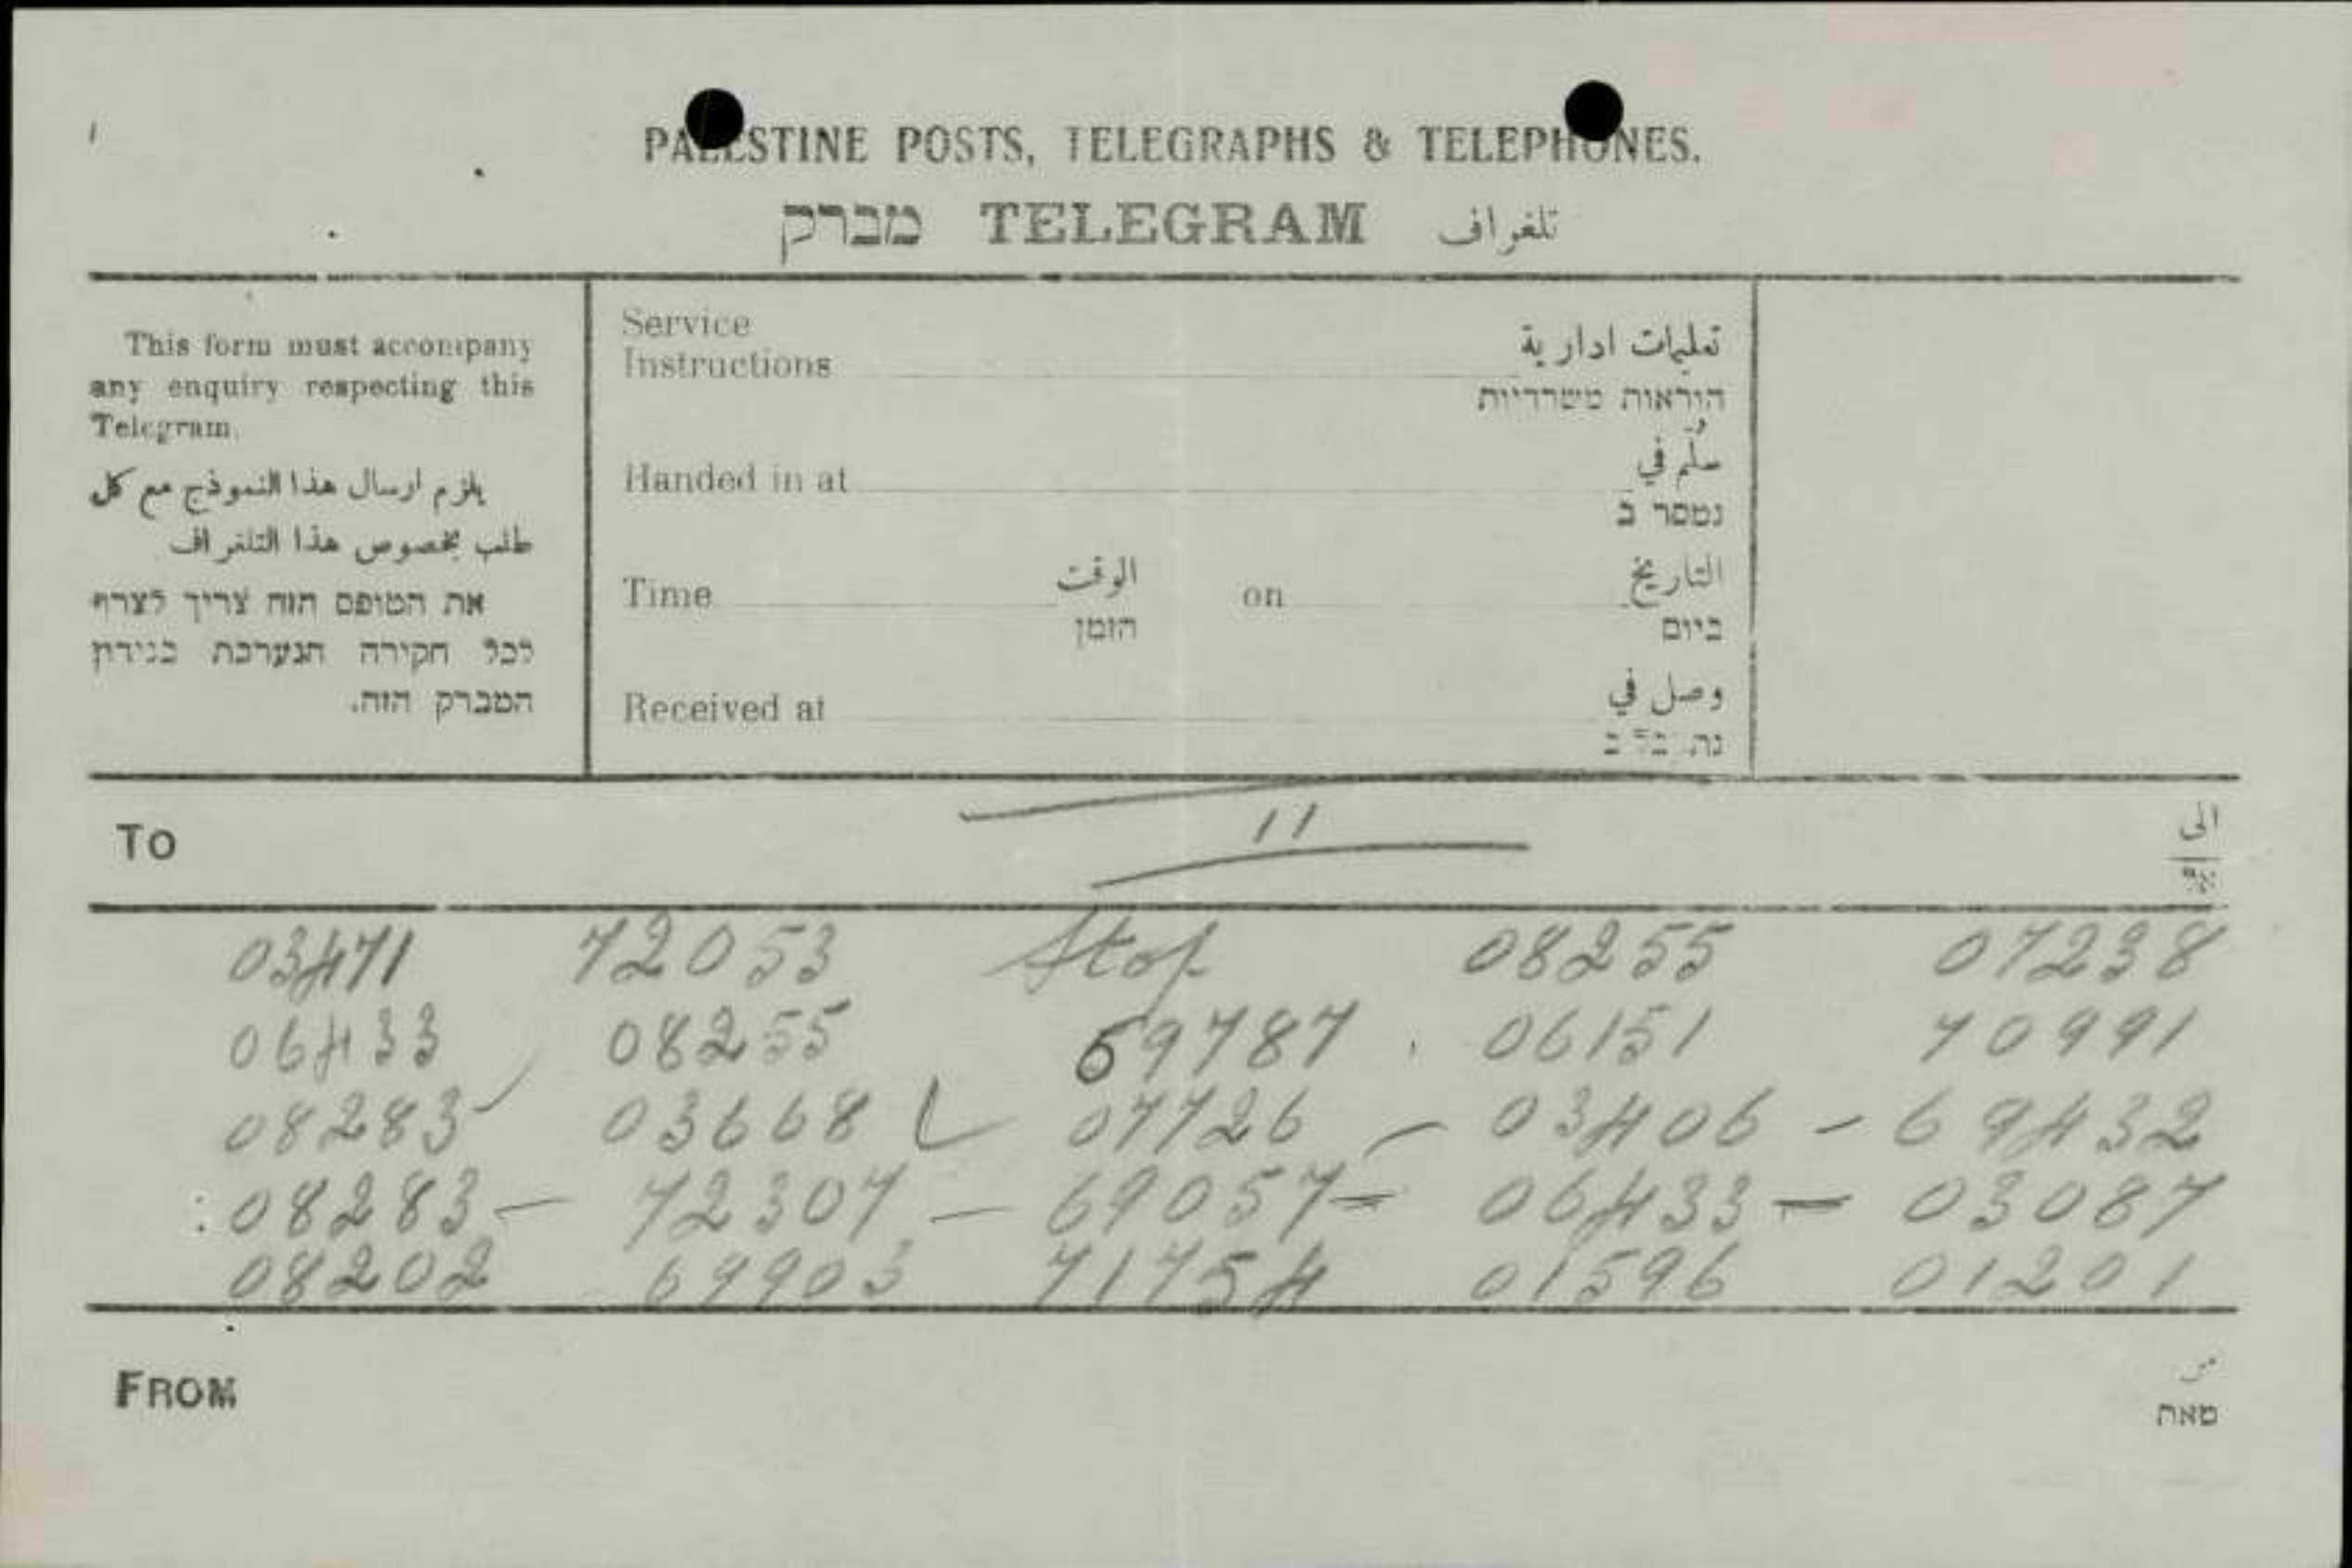 PALESTINE POSTS, TELEGRAPHS & TELEPHONES.
מברק TELEGRAM تلغراف
This form must accompany
any enquiry respecting this
Telegram.
يلزم ارسال هذا النموذج مع كل
طلب بخصوص هذا التلغراف
את הטופס הזה צריך לצרף
לכל חקירה הנערכת בנידון
המברק הזה.
Service
Instructions تعليمات ادارية
הוראות משרדיות
Handed in at سلّم في
נמסר ב
Time الوقت on التاريخ
הזמן ביום
Received at وصل في
To 11 الى
03471 72053 Stop 08255 07238
06433 08255 69787 06151 70991
08283 03668 07726 - 03406 - 69432
08283 - 72307 - 69057 - 06433 - 03087
08202 69903 71754 01596 01201
FROM من
מאת